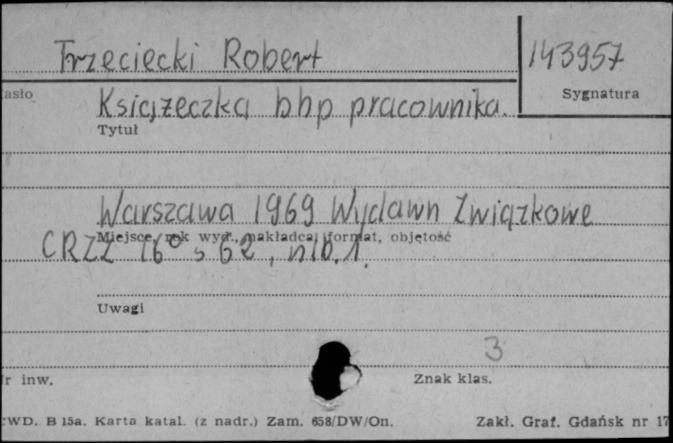 Trzeciecki Robert 143957
asło Sygnatura
Książeczka bhp pracownika.
Tytuł
Warszawa 1969 Wydawn Związkowe
Miejsce, rok wyd., nakładca, format, objętość
CRZZ 16° s 62, nlb. 1.
Uwagi
3
r inw. Znak klas.
WD. B 15a. Karta katal. (z nadr.) Zam. 658/DW/On. Zakł. Graf. Gdańsk nr 17